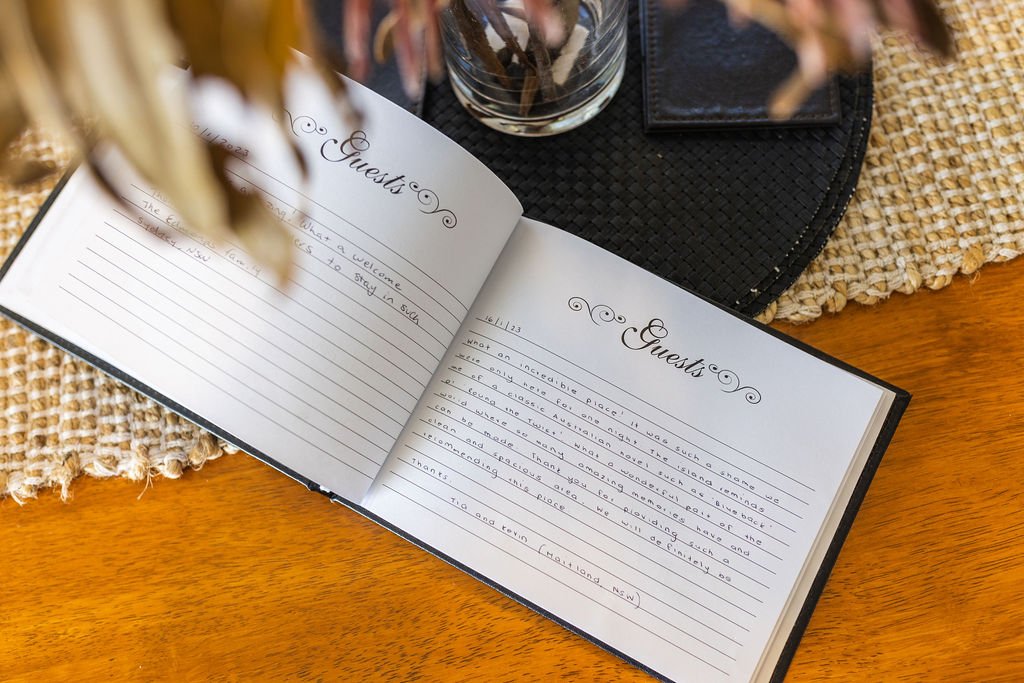 Guests
/1/2023
What a welcome
to stay in such
The Edmonds family
Sydney NSW
Guests
16/1/23
What an incredible place! It was such a shame we
were only here for one night. The island reminds
me of a classic Australian novel such as 'Blueback'
or 'Round the Twist'. What a wonderful part of the
world where so many amazing memories have and
can be made. Thank you for providing such a
clean and spacious area. We will definitely be
recommending this place
Thanks
Tia and Kevin (Maitland, NSW)